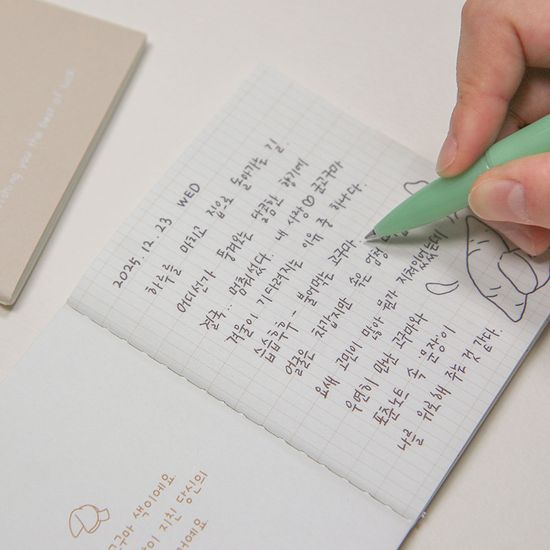 2025. 12. 23 WED
하루를 마치고 집으로 돌아가는 길
어디선가 풍겨오는 달콤한 향기에
걸음도 멈춰섰다. 내 사랑♡ 군고구마
겨울이 기다려지는 이유 중 하나다.
습습후후 - 불어먹는 고구마
얼굴은 차갑지만 속은 엄청
요새 고민이 많아 뭔가 지쳐있었는데
우연히 만난 고구마와
포춘노트 속 문장이
나를 위로해 주는 것 같다.
고구마 색이에요
이 지친 당신의
you the best of luck